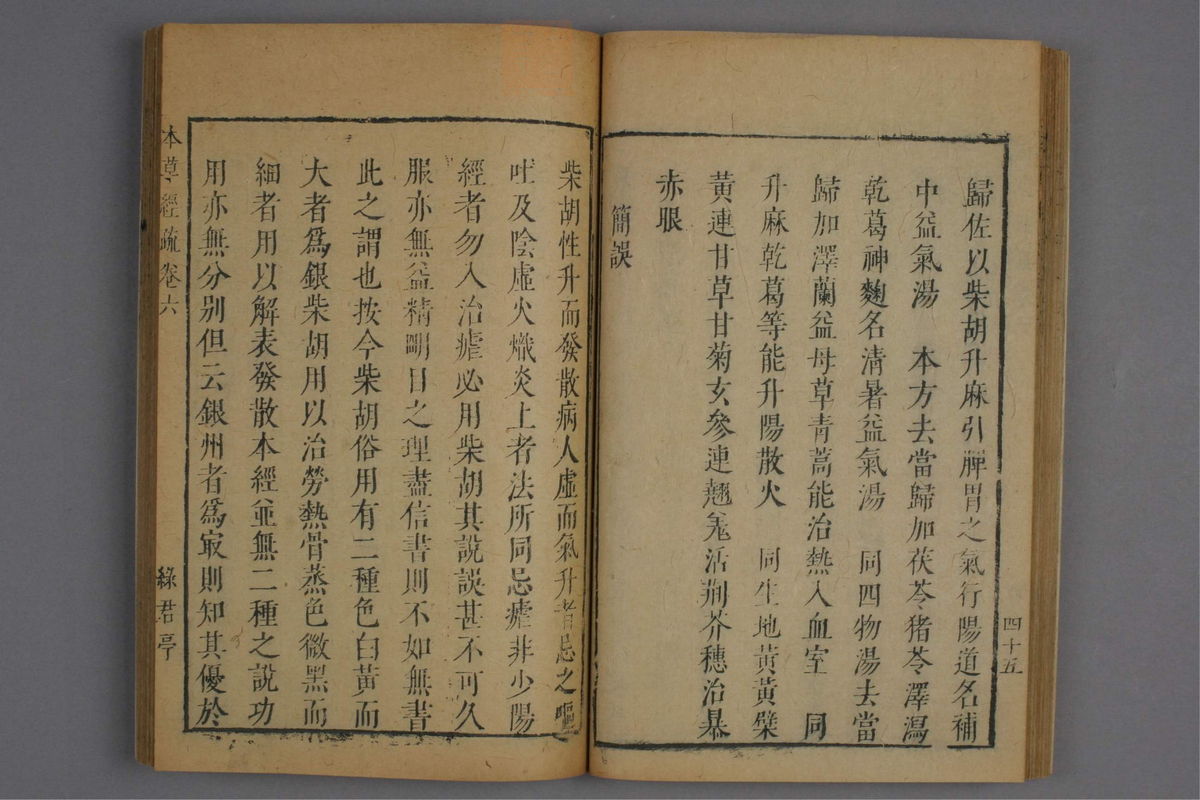 歸佐以柴胡升麻引脾胃之氣行陽道名補
中益氣湯　本方去當歸加茯苓豬苓澤瀉
乾葛神麴名清暑益氣湯　同四物湯去當
歸加澤蘭益母草青蒿能治熱入血室　同
升麻乾葛等能升陽散火　同生地黃黃檗
黃連甘草甘菊玄參連翹羌活荊芥穗治暴
赤眼
簡誤
四十五
柴胡性升而發散病人虛而氣升者忌之嘔
吐及陰虛火熾炎上者法所同忌瘧非少陽
經者勿入治瘧必用柴胡其說誤甚不可久
服亦無益精明目之理盡信書則不如無書
此之謂也按今柴胡俗用有二種色白黃而
大者爲銀柴胡用以治勞熱骨蒸色微黑而
細者用以解表發散本經並無二種之說功
用亦無分別但云銀州者爲最則知其優於
本草經疏　卷六　綠君亭